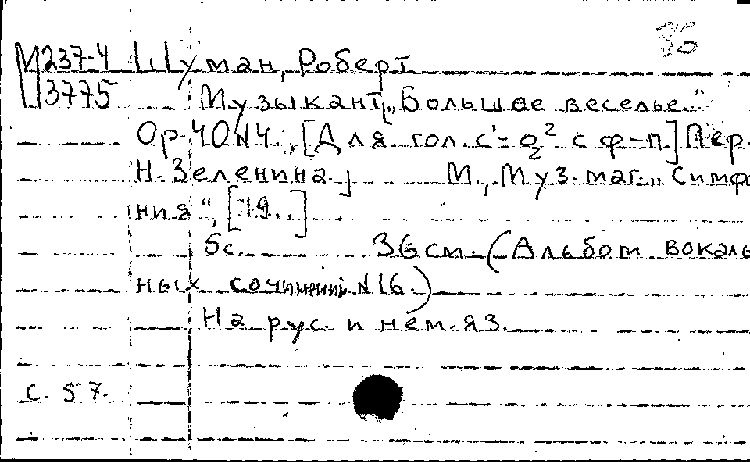 36
М237-4 Шуман, Роберт
Ш3775 Музыкант. „Большое веселье..."
Op. 40 N4. [Для гол. c'-g² с ф-п.] Пер.
Н. Зеленина. М., Муз. маг. „Симфо-
ния", [19..]
5с. 36 см. (Альбом вокаль-
ных сочинений N16.)
На рус. и нем. яз.
с. 57.